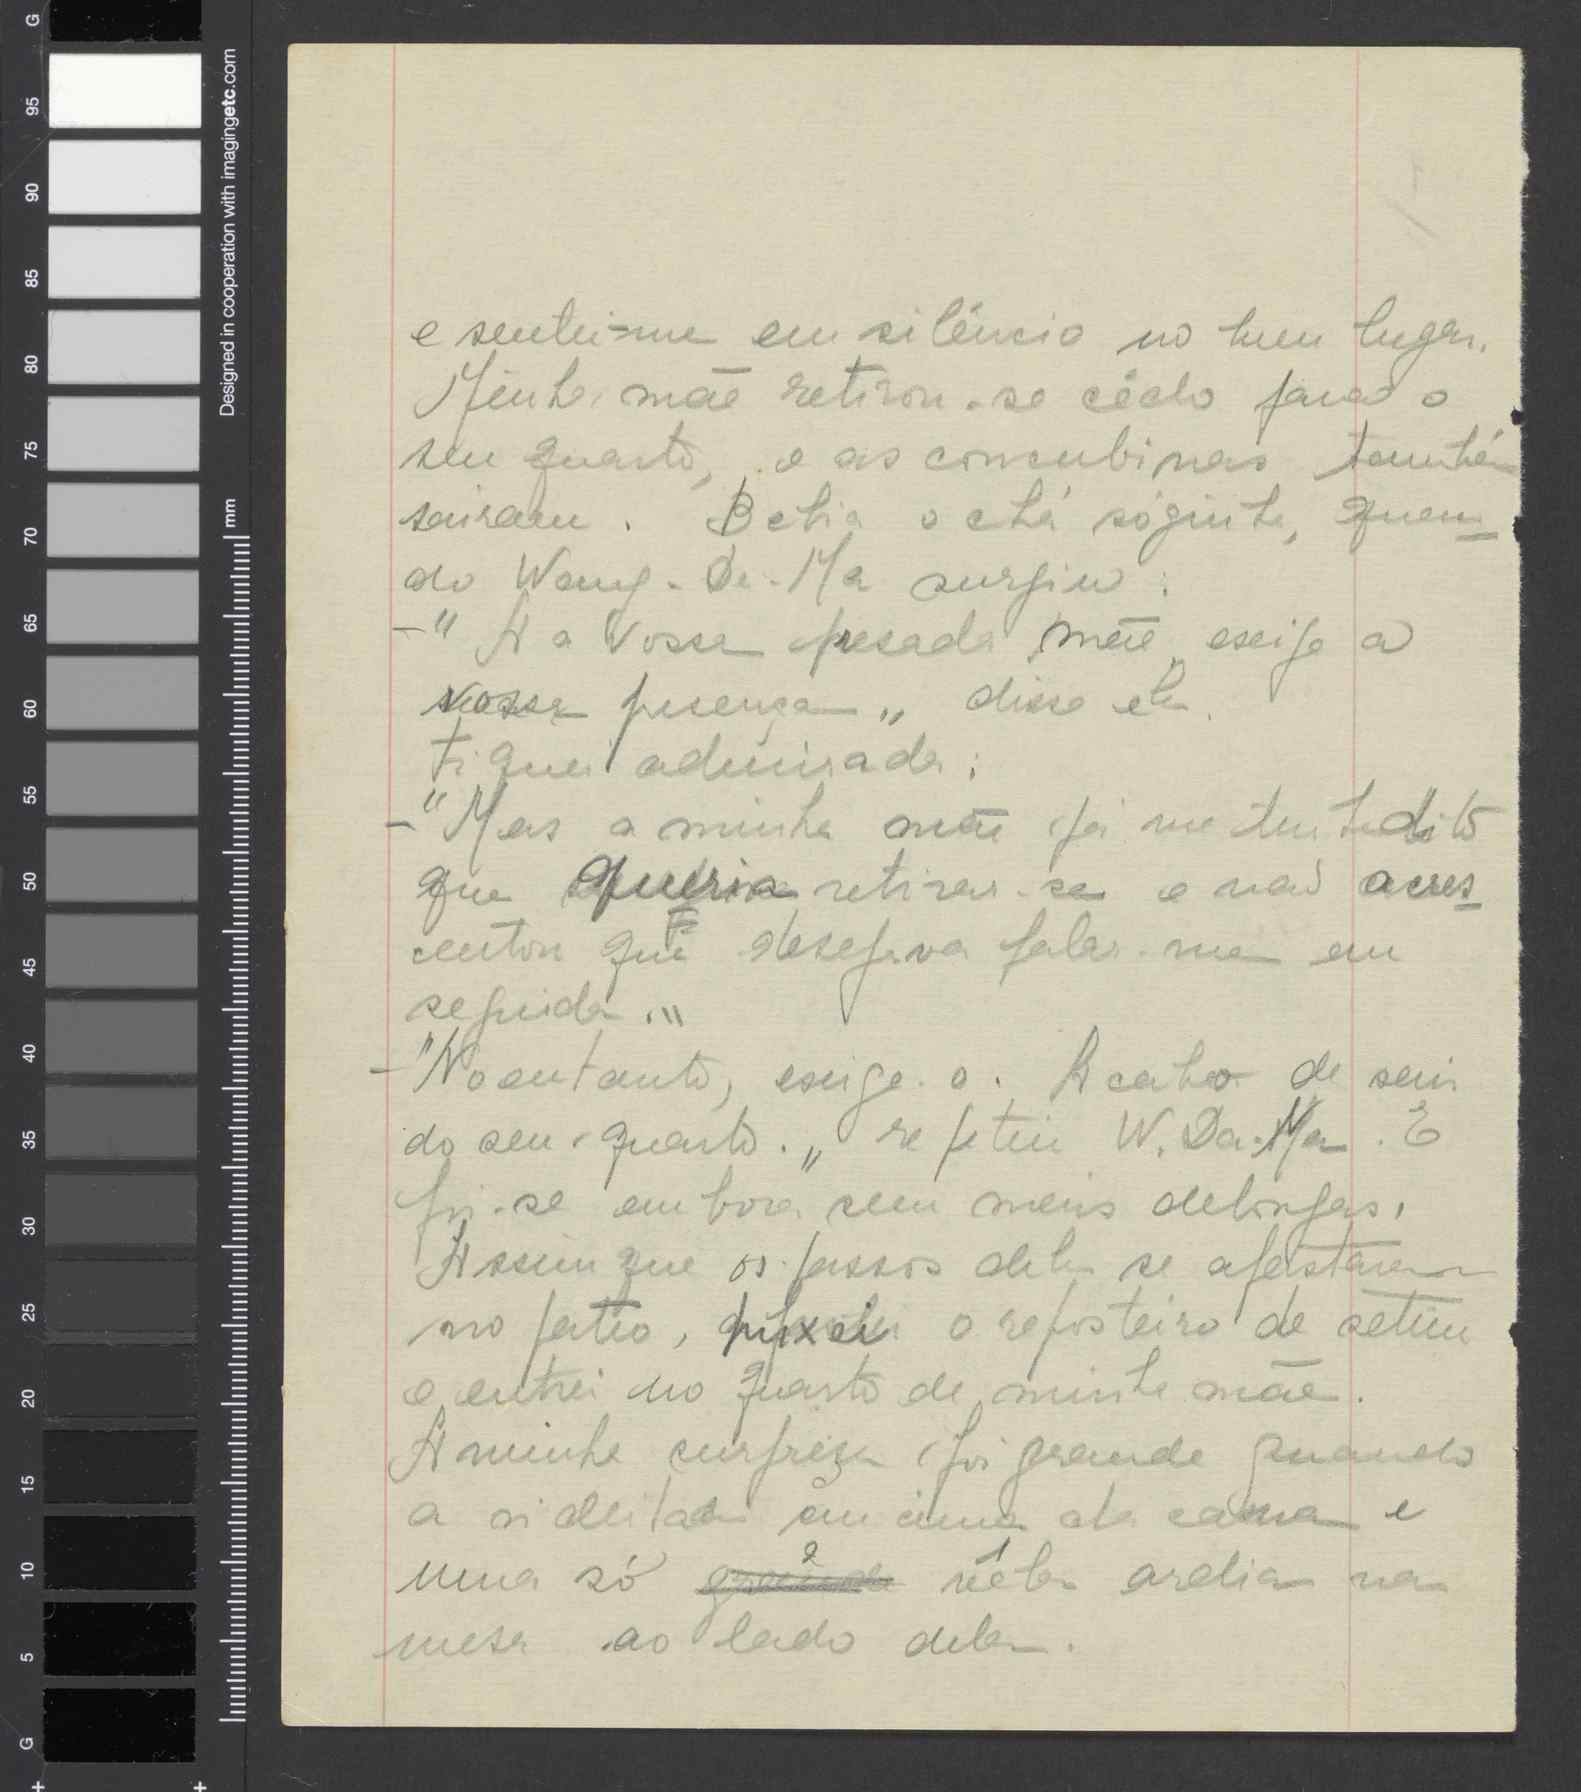 e sentei-me em silêncio no meu lugar.
Minha mãe retirou-se cêdo para o
seu quarto, e as concubinas também
sairam. Bebia o chá sózinha, quan
do Wang-Da-Ma surgiu:
-" A a vossa prezada mãe exige a
vossa presença „ disse ela.
Fiquei admirada:
-"Mas a minha mãe já me tinha dito
que queria retirar-se e não acres
centou que desejava falar-me em
seguida."
-"No entanto, exige-o. Acabo de sair
do seu quarto.„ repetiu W. Da-Ma. E
foi-se embora sem mais delongas.
Assim que os passos dela se afastaram
no patio, puxei o reposteiro de setim
e entrei no quarto de minha mãe.
A minha surpreza foi grande quando
a vi deitada em cima da cama e
uma só véla ardia na
mesa ao lado dela.
G
95
90
85
80
75
70
65
60
55
50
45
40
35
30
25
20
15
10
5
G
Designed in cooperation with imagingetc.com
mm